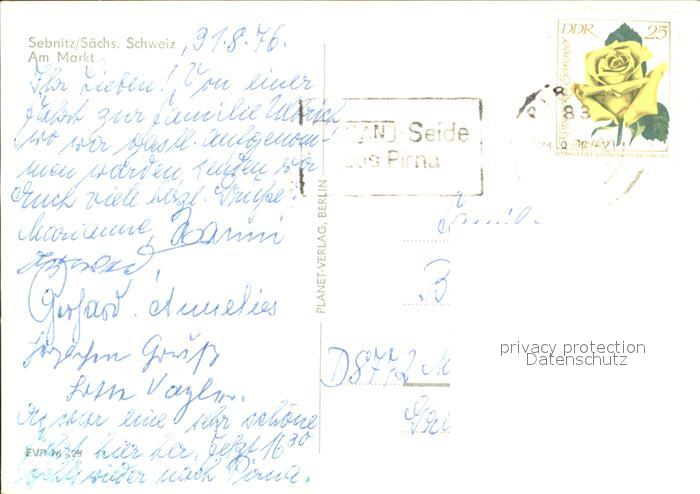 Sebnitz/Sächs. Schweiz
Am Markt
31.8.76.
Ihr Lieben! Von einer
Fahrt zur Familie
wo wir aufgenom-
men wurden, senden wir
Euch viele herzl. Grüße!
Marianne, Hanni
Gerhard. Annelies
Herzlichen Gruß
Vogler.
Es war eine sehr schöne
Fahrt hier her, jetzt 16 30
geht's wieder nach Pirna.
EVP
PLANET-VERLAG, BERLIN
DDR 25
-Seide
aus Pirna
Famil
B
D 8772 M
privacy protection
Datenschutz